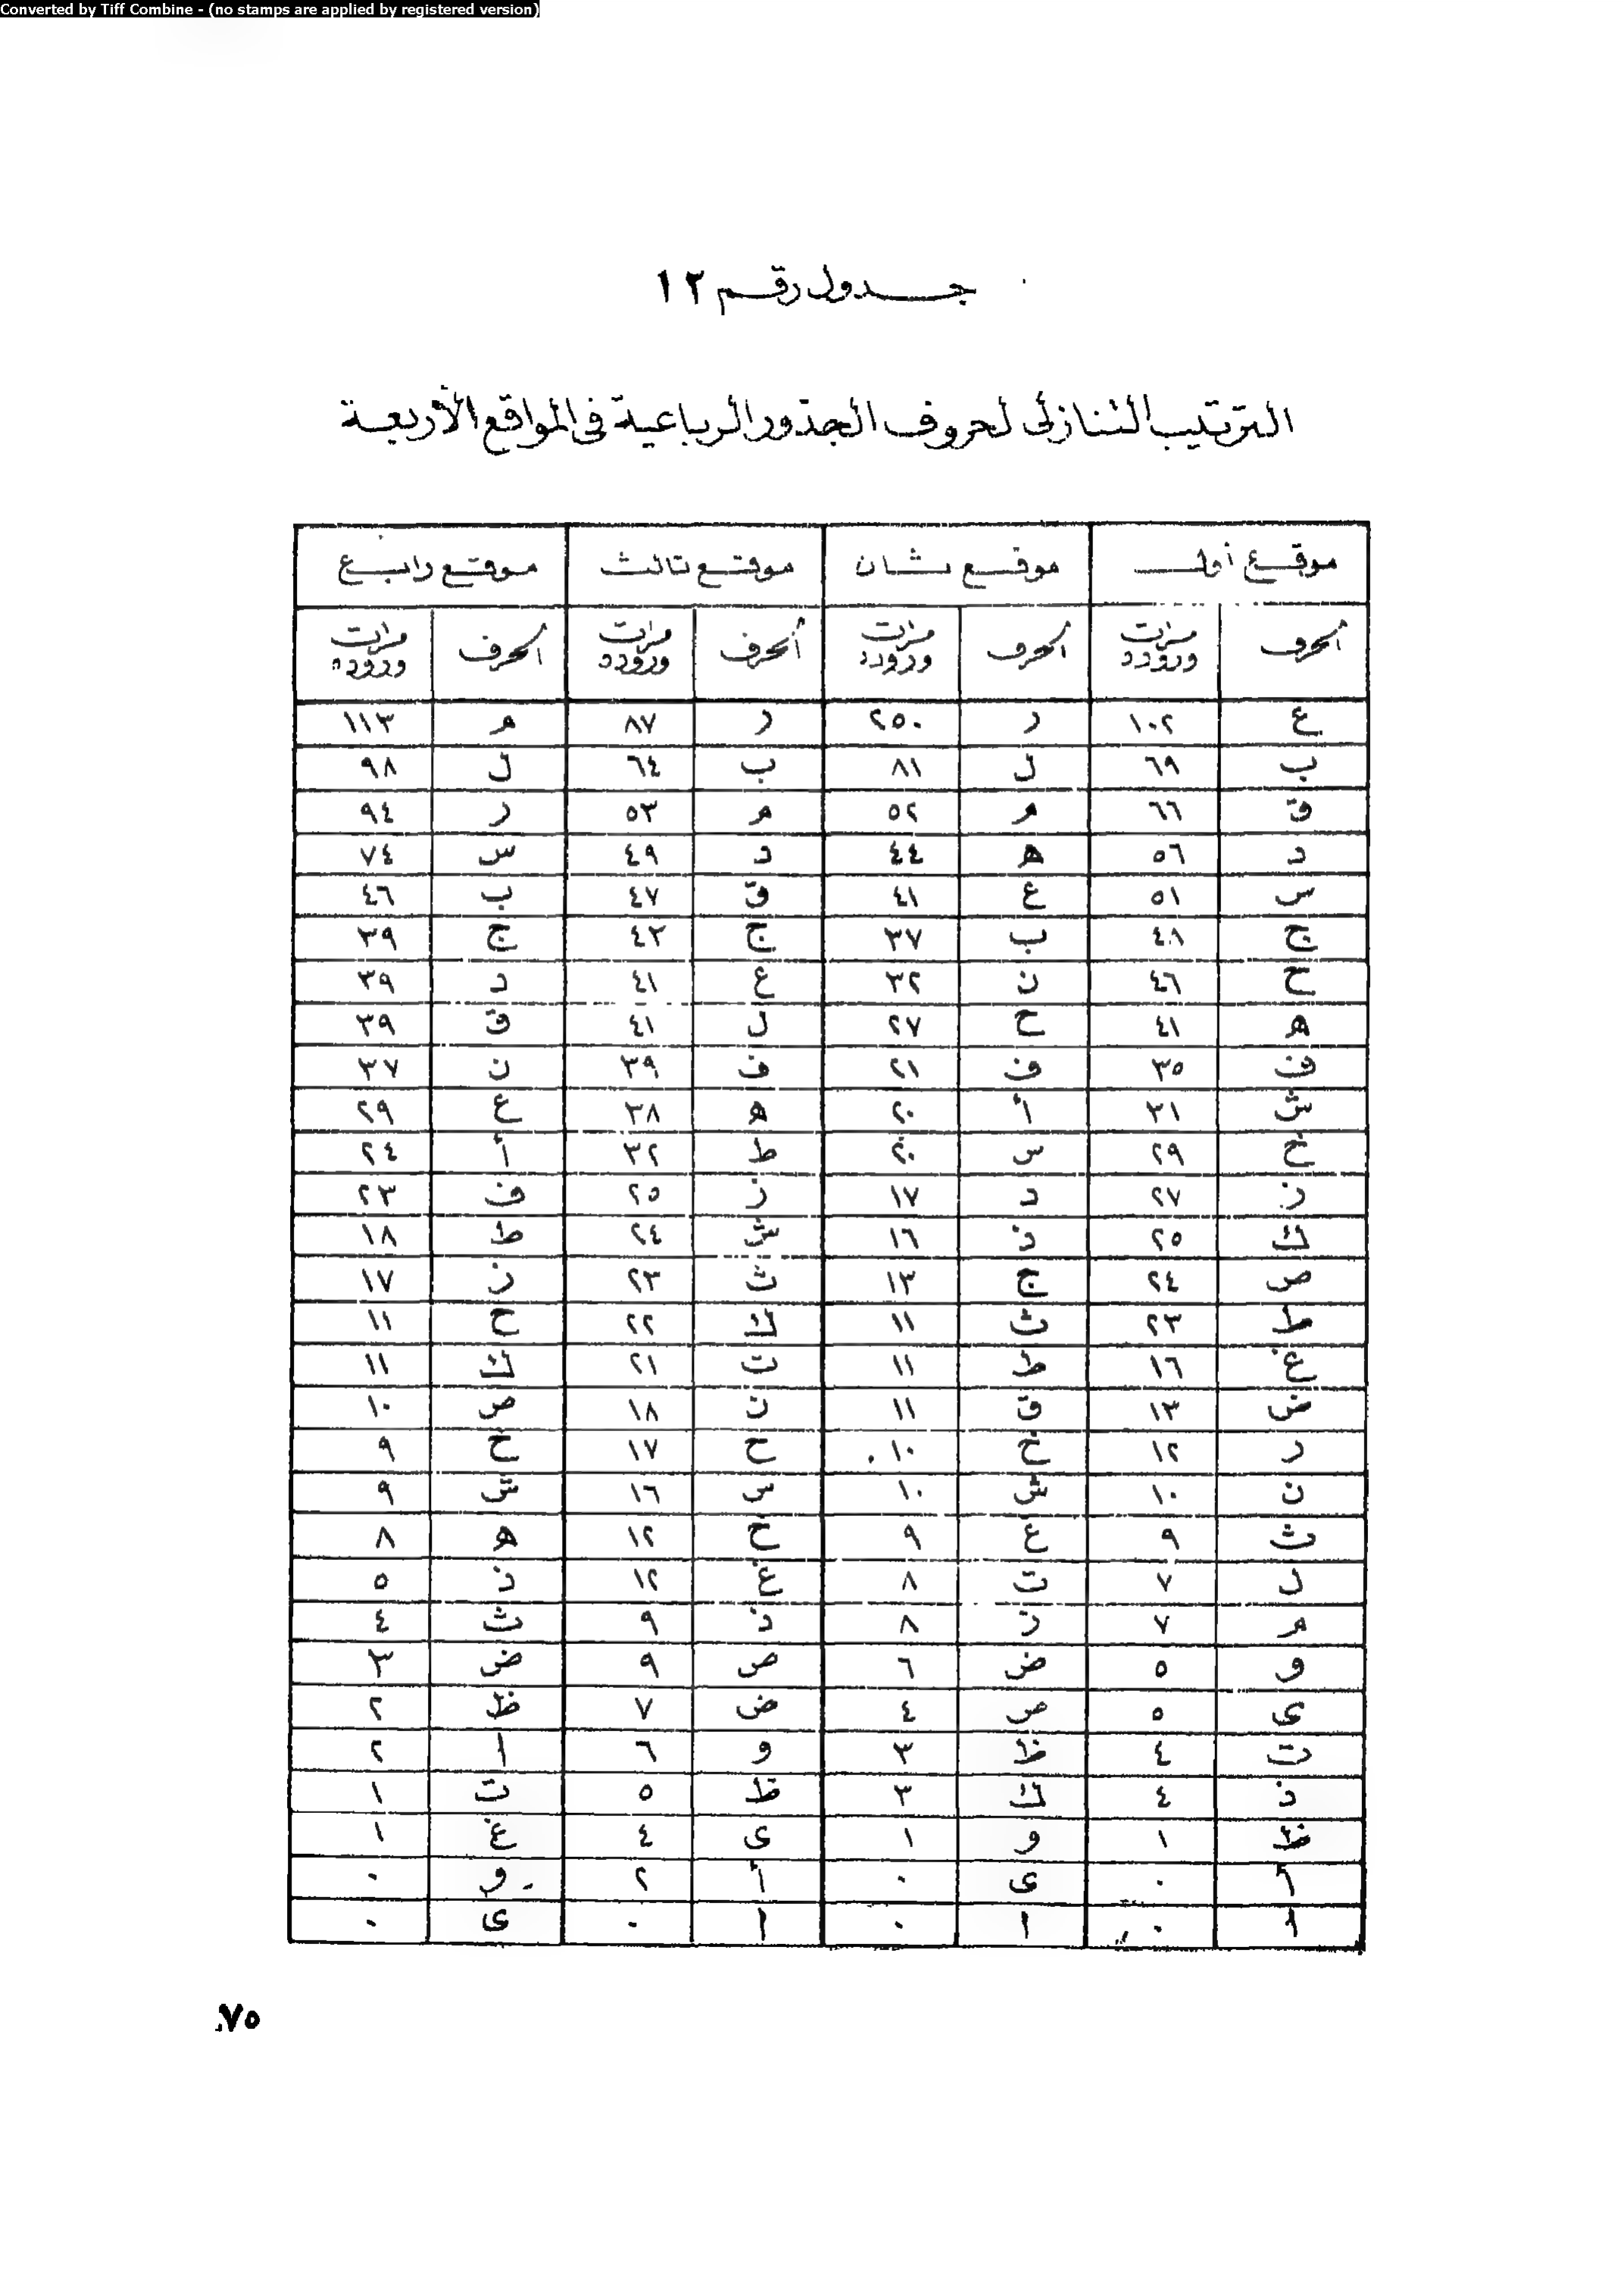 Converted by Tiff Combine - (no stamps are applied by registered version)
جدول رقم ١٢
الترتيب التنازلى لحروف الجذور الرباعية فى المواقع الأربعة
موقع أول موقع ثان موقع ثالث موقع رابع
الحرف مرات وروده الحرف مرات وروده الحرف مرات وروده الحرف مرات وروده
ع ١٠٢ ر ٢٥٠ ر ٨٧ م ١١٣
ب ٦٩ ل ٨١ ب ٦٤ ل ٩٨
ق ٦٦ م ٥٢ م ٥٣ ر ٩٤
د ٥٦ ه ٤٤ د ٤٩ س ٧٤
س ٥١ ع ٤١ ق ٤٧ ب ٤٦
ج ٤٨ ب ٣٧ ج ٤٢ ج ٣٩
ح ٤٦ ن ٣٢ ع ٤١ د ٣٩
ه ٤١ ح ٢٧ ل ٤١ ق ٣٩
ف ٣٥ ف ٢١ ف ٣٩ ن ٣٧
ش ٣١ أ ٢٠ ه ٣٨ ع ٢٩
خ ٢٩ س ٢٠ ط ٣٢ أ ٢٤
ز ٢٧ د ١٧ ز ٢٥ ف ٢٣
ك ٢٥ ذ ١٦ ش ٢٤ ط ١٨
ص ٢٤ ج ١٣ ث ٢٣ ز ١٧
ط ٢٣ ث ١١ ك ٢٢ ح ١١
غ ١٦ ط ١١ ت ٢١ ك ١١
ض ١٣ ق ١١ ن ١٨ ص ١٠
ر ١٢ خ ١٠ ح ١٧ ح ٩
ن ١٠ ش ١٠ س ١٦ ش ٩
ث ٩ ع ٩ خ ١٢ ه ٨
ل ٧ ت ٨ غ ١٢ ذ ٥
م ٧ ز ٨ ذ ٩ ث ٤
و ٥ ض ٦ ص ٩ ض ٣
ى ٥ ص ٤ ض ٧ ظ ٢
ت ٤ ظ ٣ و ٦ ا ٢
ذ ٤ ك ٣ ظ ٥ ت ١
ظ ١ و ١ ى ٤ غ ١
أ ٠ ى ٠ أ ٢ و ٠
ا ٠ ا ٠ ا ٠ ى ٠
٧٥